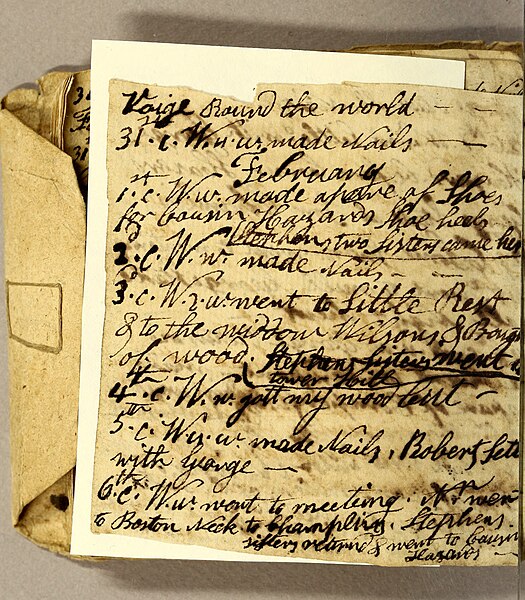 Voige Round the world
31. c. W. n. w. made Nails
February
1st. c. W. w. made apare of Shoes
for Cousin Hazards Shoe heels
Stephens two sisters came her
2d. c. W. nw. made Nails
3d. c. W. w. went to Little Rest
& to the widdow Wilsons & Boug
of wood. Stephens sisters went
tower hill
4th. c. W. w. gott my wood Cut
5th. c. W. w. made Nails, Robert Set
with George
6th. c. W. w. went to meeting. wen
to Boston Neck to Champlins. Stephens
sisters returnd & went to Cousin
Hazards